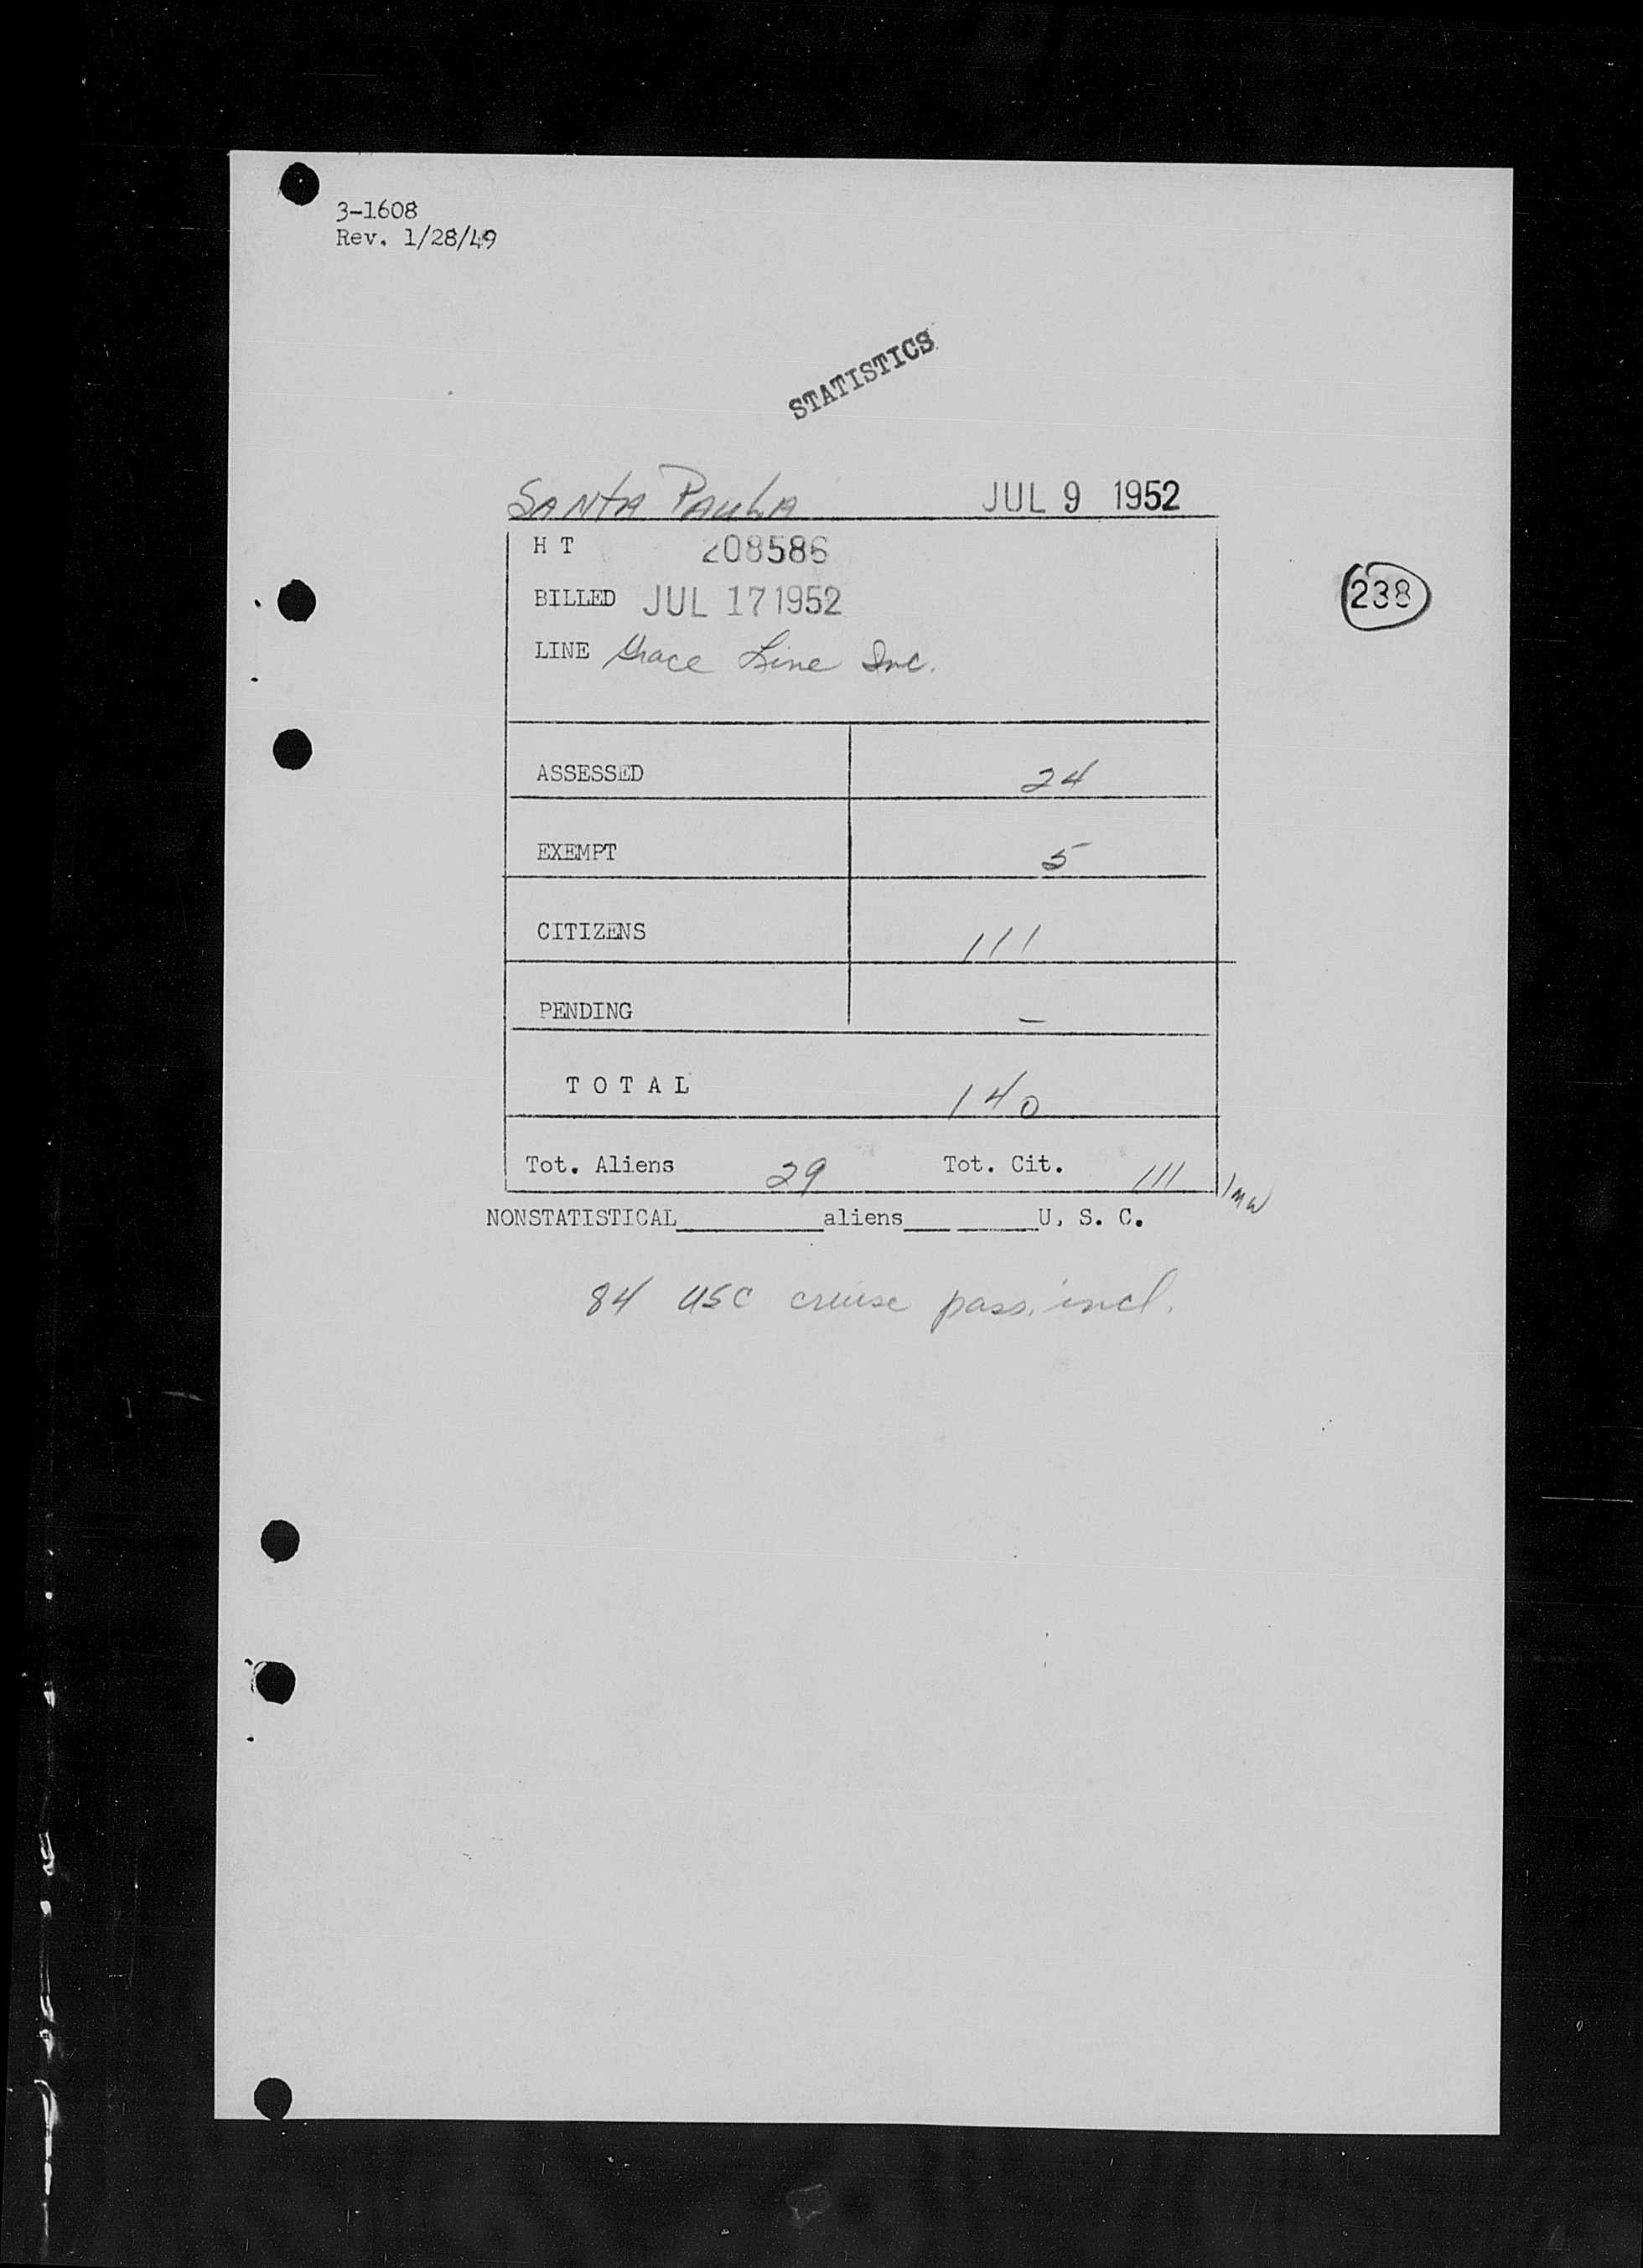 3-1608
Rev. 1/28/49
STATISTICS
SANTA PAULA JUL 9 1952
H T 208586
BILLED JUL 17 1952
238
LINE Grace Line Inc.
ASSESSED 24
EXEMPT 5
CITIZENS 111
PENDING –
TOTAL 140
Tot. Aliens 29 Tot. Cit. 111
NONSTATISTICAL__________aliens____ ______U. S. C.
84 USC cruise pass. incl.